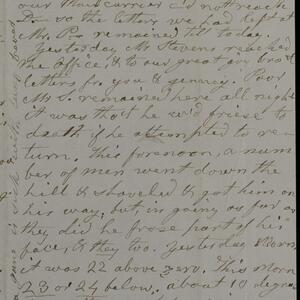 our Mail carrier did not reach
so the letters we had kept at
Mr. P. remained till today.
Yesterday Mr Stevens reached
the Office, & to our great joy bro't
letters fr. you & Jenney. Poor
Mr S. remained here all night
it was tho't he w'd freese to
death if he attempted to re-
turn. This forenoon, a num
ber of men went down the
hill & shoveled & got him on
his way, but, in going as far as
they did he froze part of his
face, & they too. Yesterday Morn
it was 22 above zero. This Morn
23 or 24 below. about 10 degre